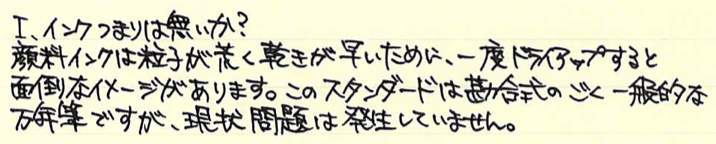 I、インクつまりは無いか?
顔料インクは粒子が荒く乾きが早いために、一度ドライアップすると
面倒なイメージがあります。このスタンダードは勘合式のごく一般的な
万年筆ですが、現状問題は発生していません。